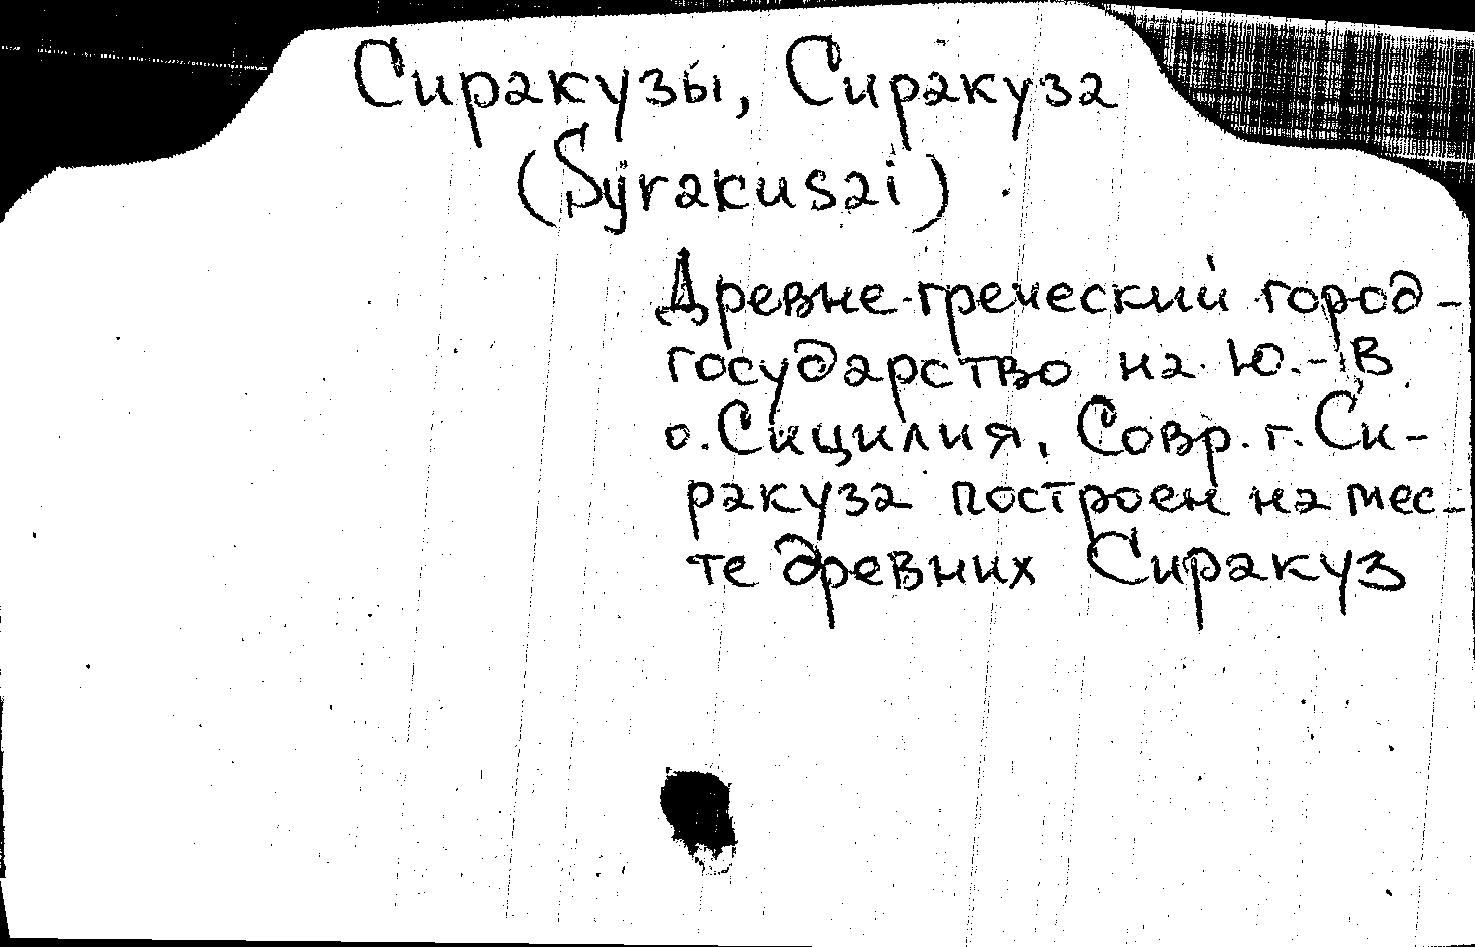 Сиракузы, Сиракуза
(Syrakusai).
Древне-греческий город-
государство на Ю.-В
о. Сицилия. Совр. г. Си-
ракуза построен на мес-
те древних Сиракуз